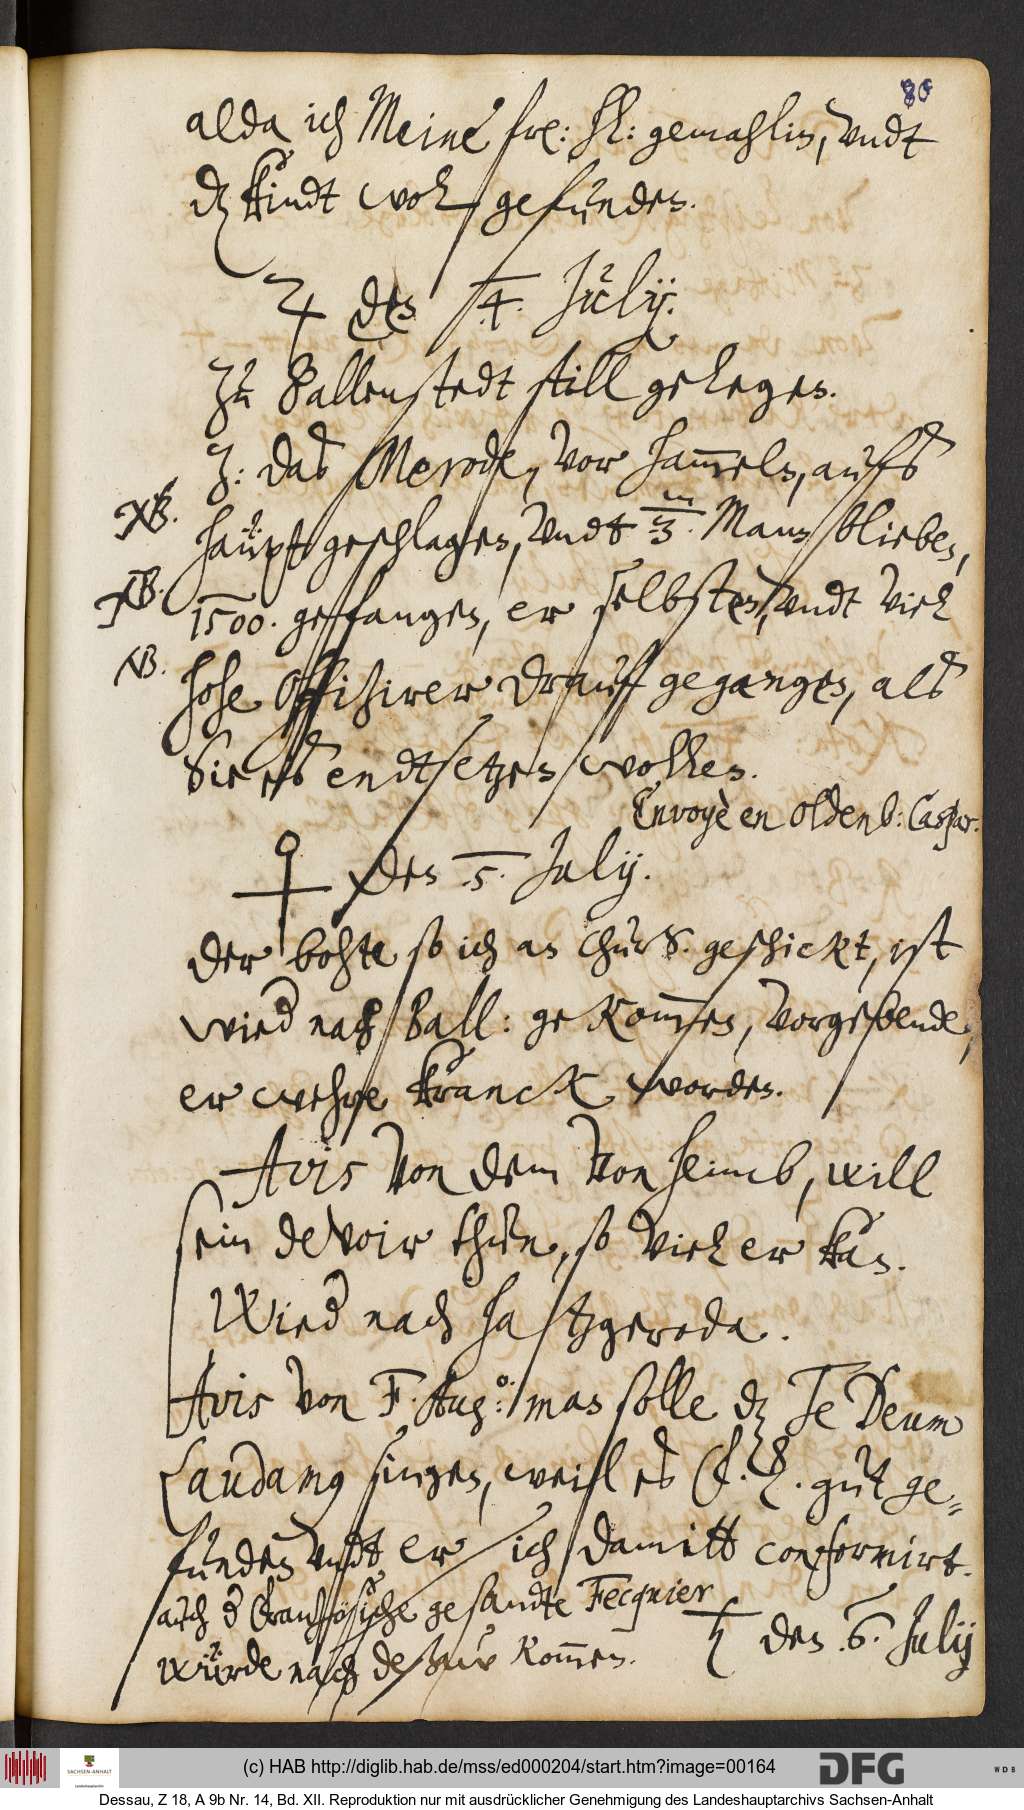 80
alda ich Meine frl: hl: gemahlin, vndt
dz kindt wol gefunden.
♃ den 4. Julÿ.
Zu Ballenstedt still gelegen.
Z: das Merode, vor Hammeln, aufs
NB. haüpt geschlagen, vndt 3/m. Mann blieben,
NB. 1500. gefangen, er selbsten, vndt viel
NB. hohe Offizirer drauf gegangen, als
Sie es endtsetzen wollen.
Envoyè en Oldenb: Caspar.
♀ den 5. Julÿ.
Der bohte so ich an ChurS. geschickt, ist
wied nach Ball: gekommen, vorgebende,
er wehre kranck worden.
Avis von dem von Heimb, will
sein devoir thun, so viel er kan.
Wied nach Hatzgeroda.
Avis von F. Aug:o man solle dz Te Deum
Laudamus singen, weil es C. S. gut ge=
funden vndt er sich damitt conformirt.
auch d Frantzösische gesandte Fecquier
würde nach Deßaw kommen.
♄ den 6. Julÿ
(c) HAB http://diglib.hab.de/mss/ed000204/start.htm?image=00164
SACHSEN-ANHALT
DFG
WDB
Dessau, Z 18, A 9b Nr. 14, Bd. XII. Reproduktion nur mit ausdrücklicher Genehmigung des Landeshauptarchivs Sachsen-Anhalt